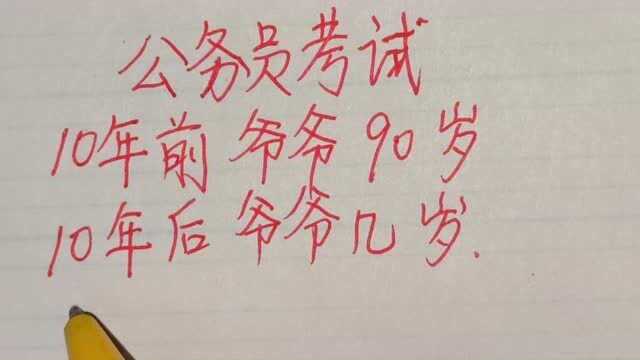 公务员考试
10年前 爷爷 90 岁
10年后 爷爷几岁.